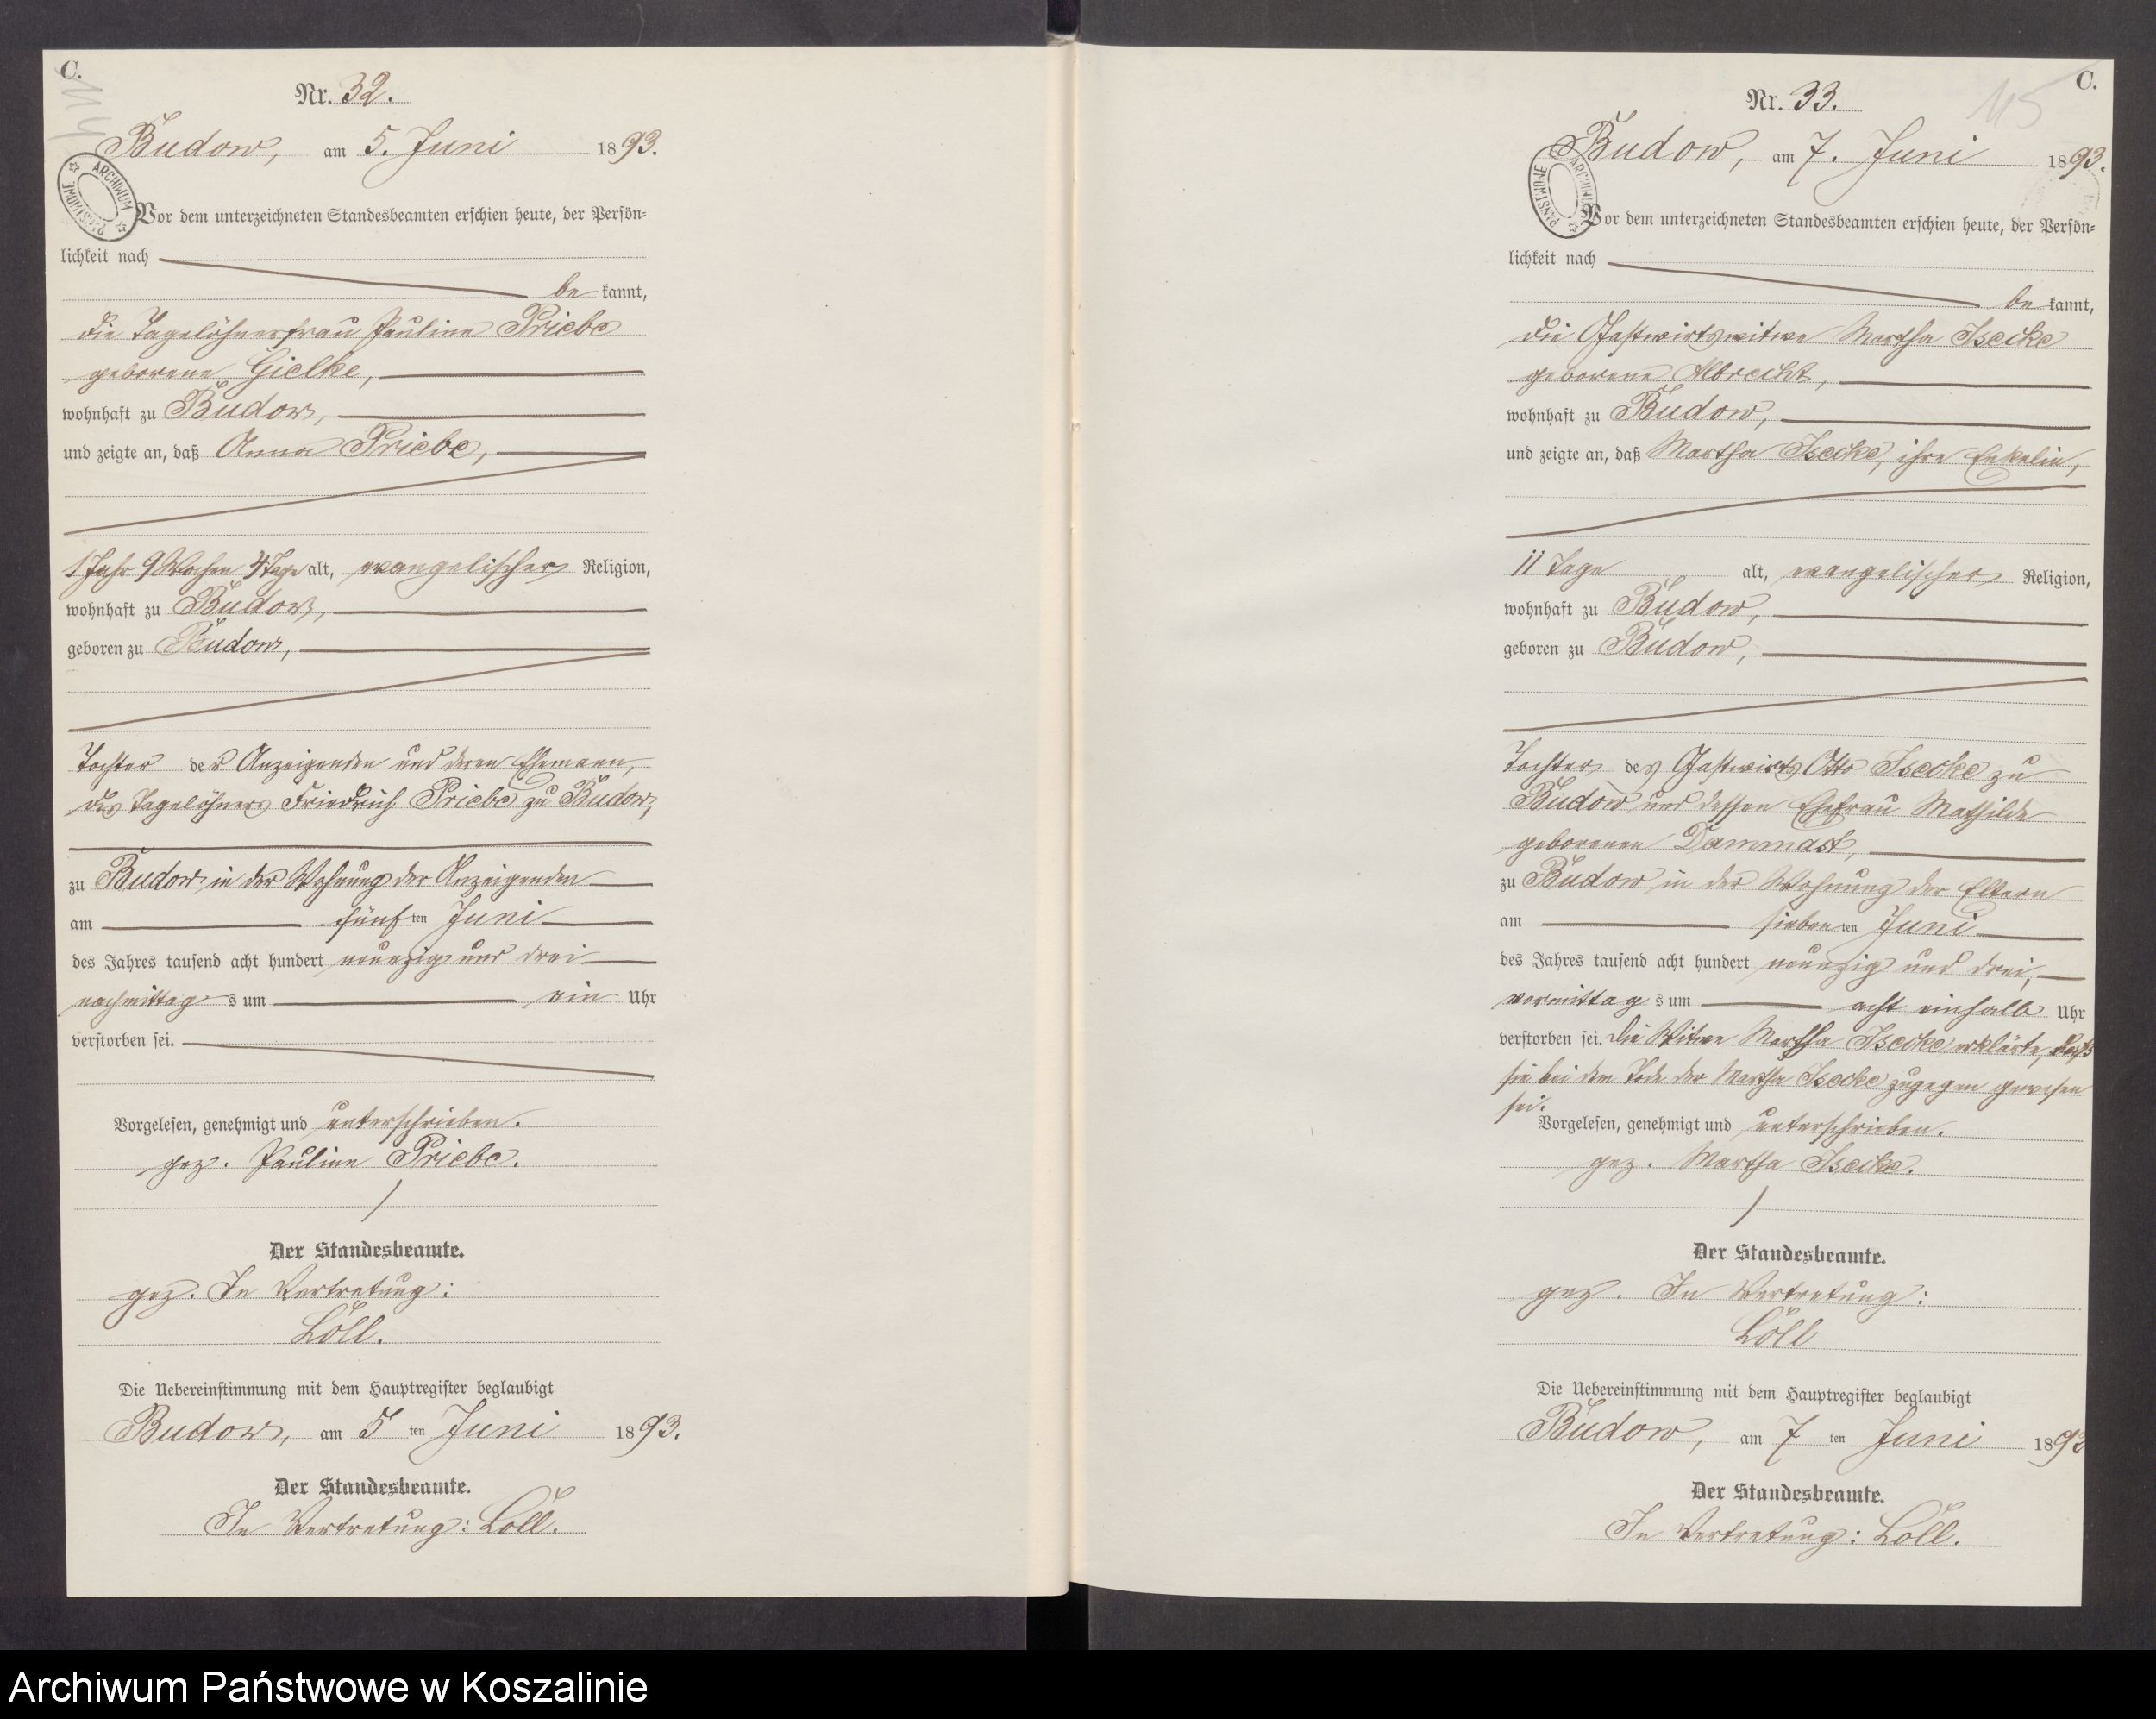 C.
Nr. 32.
Budow, am 5. Juni 1893.
ARCHIWUM PAŃSTWOWE
Vor dem unterzeichneten Standesbeamten erschien heute, der Persön=
lichkeit nach
be kannt,
die Tagelöhnerfrau Pauline Priebe
geborene Gielke,
wohnhaft zu Budow,
und zeigte an, daß Anna Priebe,
1 Jahr 9 Wochen 4 Tage alt, evangelischer Religion,
wohnhaft zu Budow,
geboren zu Budow,
Tochter der Anzeigenden und deren Ehemann,
des Tagelöhners Friedrich Priebe zu Budow,
zu Budow in der Wohnung der Anzeigenden
am fünf ten Juni
des Jahres tausend acht hundert neunzig und drei
nachmittag s um ein Uhr
verstorben sei.
Vorgelesen, genehmigt und unterschrieben.
gez. Pauline Priebe.
Der Standesbeamte.
gez. In Vertretung:
Löll.
Die Uebereinstimmung mit dem Hauptregister beglaubigt
Budow, am 5 ten Juni 1893.
Der Standesbeamte.
In Vertretung: Löll.
C.
Nr. 33.
115
Budow, am 7. Juni 1893.
ARCHIWUM PAŃSTWOWE
Vor dem unterzeichneten Standesbeamten erschien heute, der Persön=
lichkeit nach
be kannt,
die Gastwirtswitwe Martha Isecke
geborene Albrecht,
wohnhaft zu Budow,
und zeigte an, daß Martha Isecke, ihre Enkelin,
11 Tage alt, evangelischer Religion,
wohnhaft zu Budow,
geboren zu Budow,
Tochter des Gastwirts Otto Isecke zu
Budow und dessen Ehefrau Mathilde
geborenen Dammast,
zu Budow in der Wohnung der Eltern
am sieben ten Juni
des Jahres tausend acht hundert neunzig und drei,
vormittag s um acht einhalb Uhr
verstorben sei. Die Witwe Martha Isecke erklärte, daß
sie bei dem Tode der Martha Isecke zugegen gewesen
sei.
Vorgelesen, genehmigt und unterschrieben.
gez. Martha Isecke.
Der Standesbeamte.
gez. In Vertretung:
Löll
Die Uebereinstimmung mit dem Hauptregister beglaubigt
Budow, am 7 ten Juni 1893
Der Standesbeamte.
In Vertretung: Löll.
Archiwum Państwowe w Koszalinie